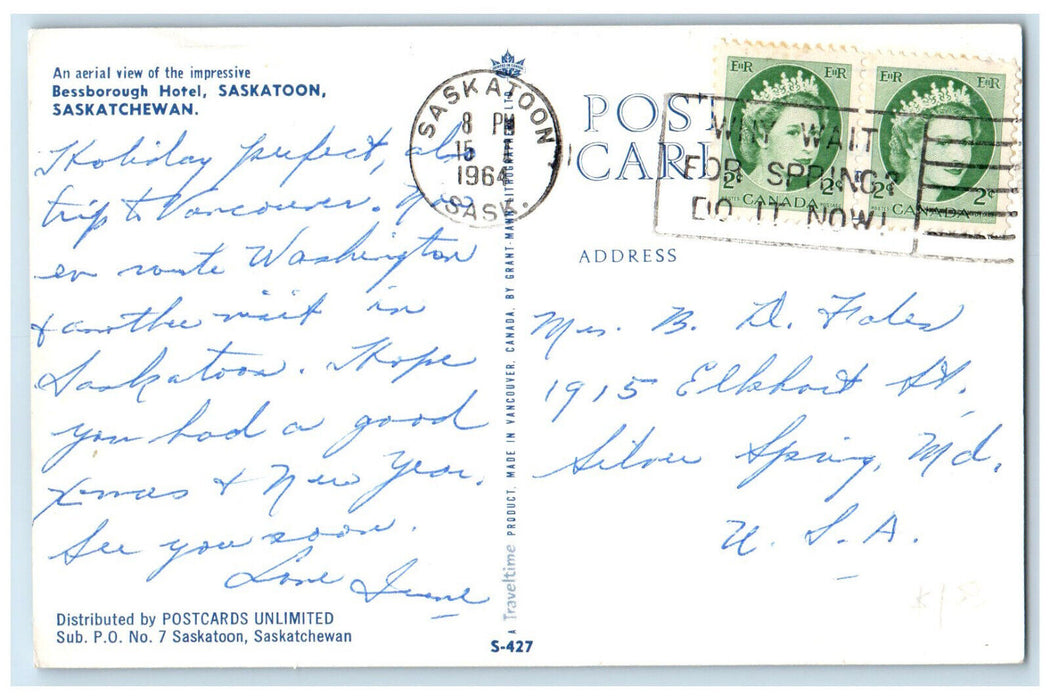 An aerial view of the impressive
Bessborough Hotel, SASKATOON,
SASKATCHEWAN.
Holiday perfect, also
trip to Vancouver. Now
en route Washington
& another visit in
Saskatoon. Hope
you had a good
Xmas & New Year.
See you soon.
Love June
Distributed by POSTCARDS UNLIMITED
Sub. P.O. No. 7 Saskatoon, Saskatchewan
A Traveltime PRODUCT, MADE IN VANCOUVER, CANADA, BY GRANT-MANN LITHOGRAPHERS LTD.
S-427
SASKATOON
8 PM
15
1964
SASK.
POST
CARD
WHY WAIT
FOR SPRING?
DO IT NOW!
EIIR EIIR
2¢ 2¢
CANADA
EIIR EIIR
2¢ 2¢
CANADA
ADDRESS
Mrs. B. D. Fales
1915 Elkhart St.
Silver Spring, Md.
U. S. A.